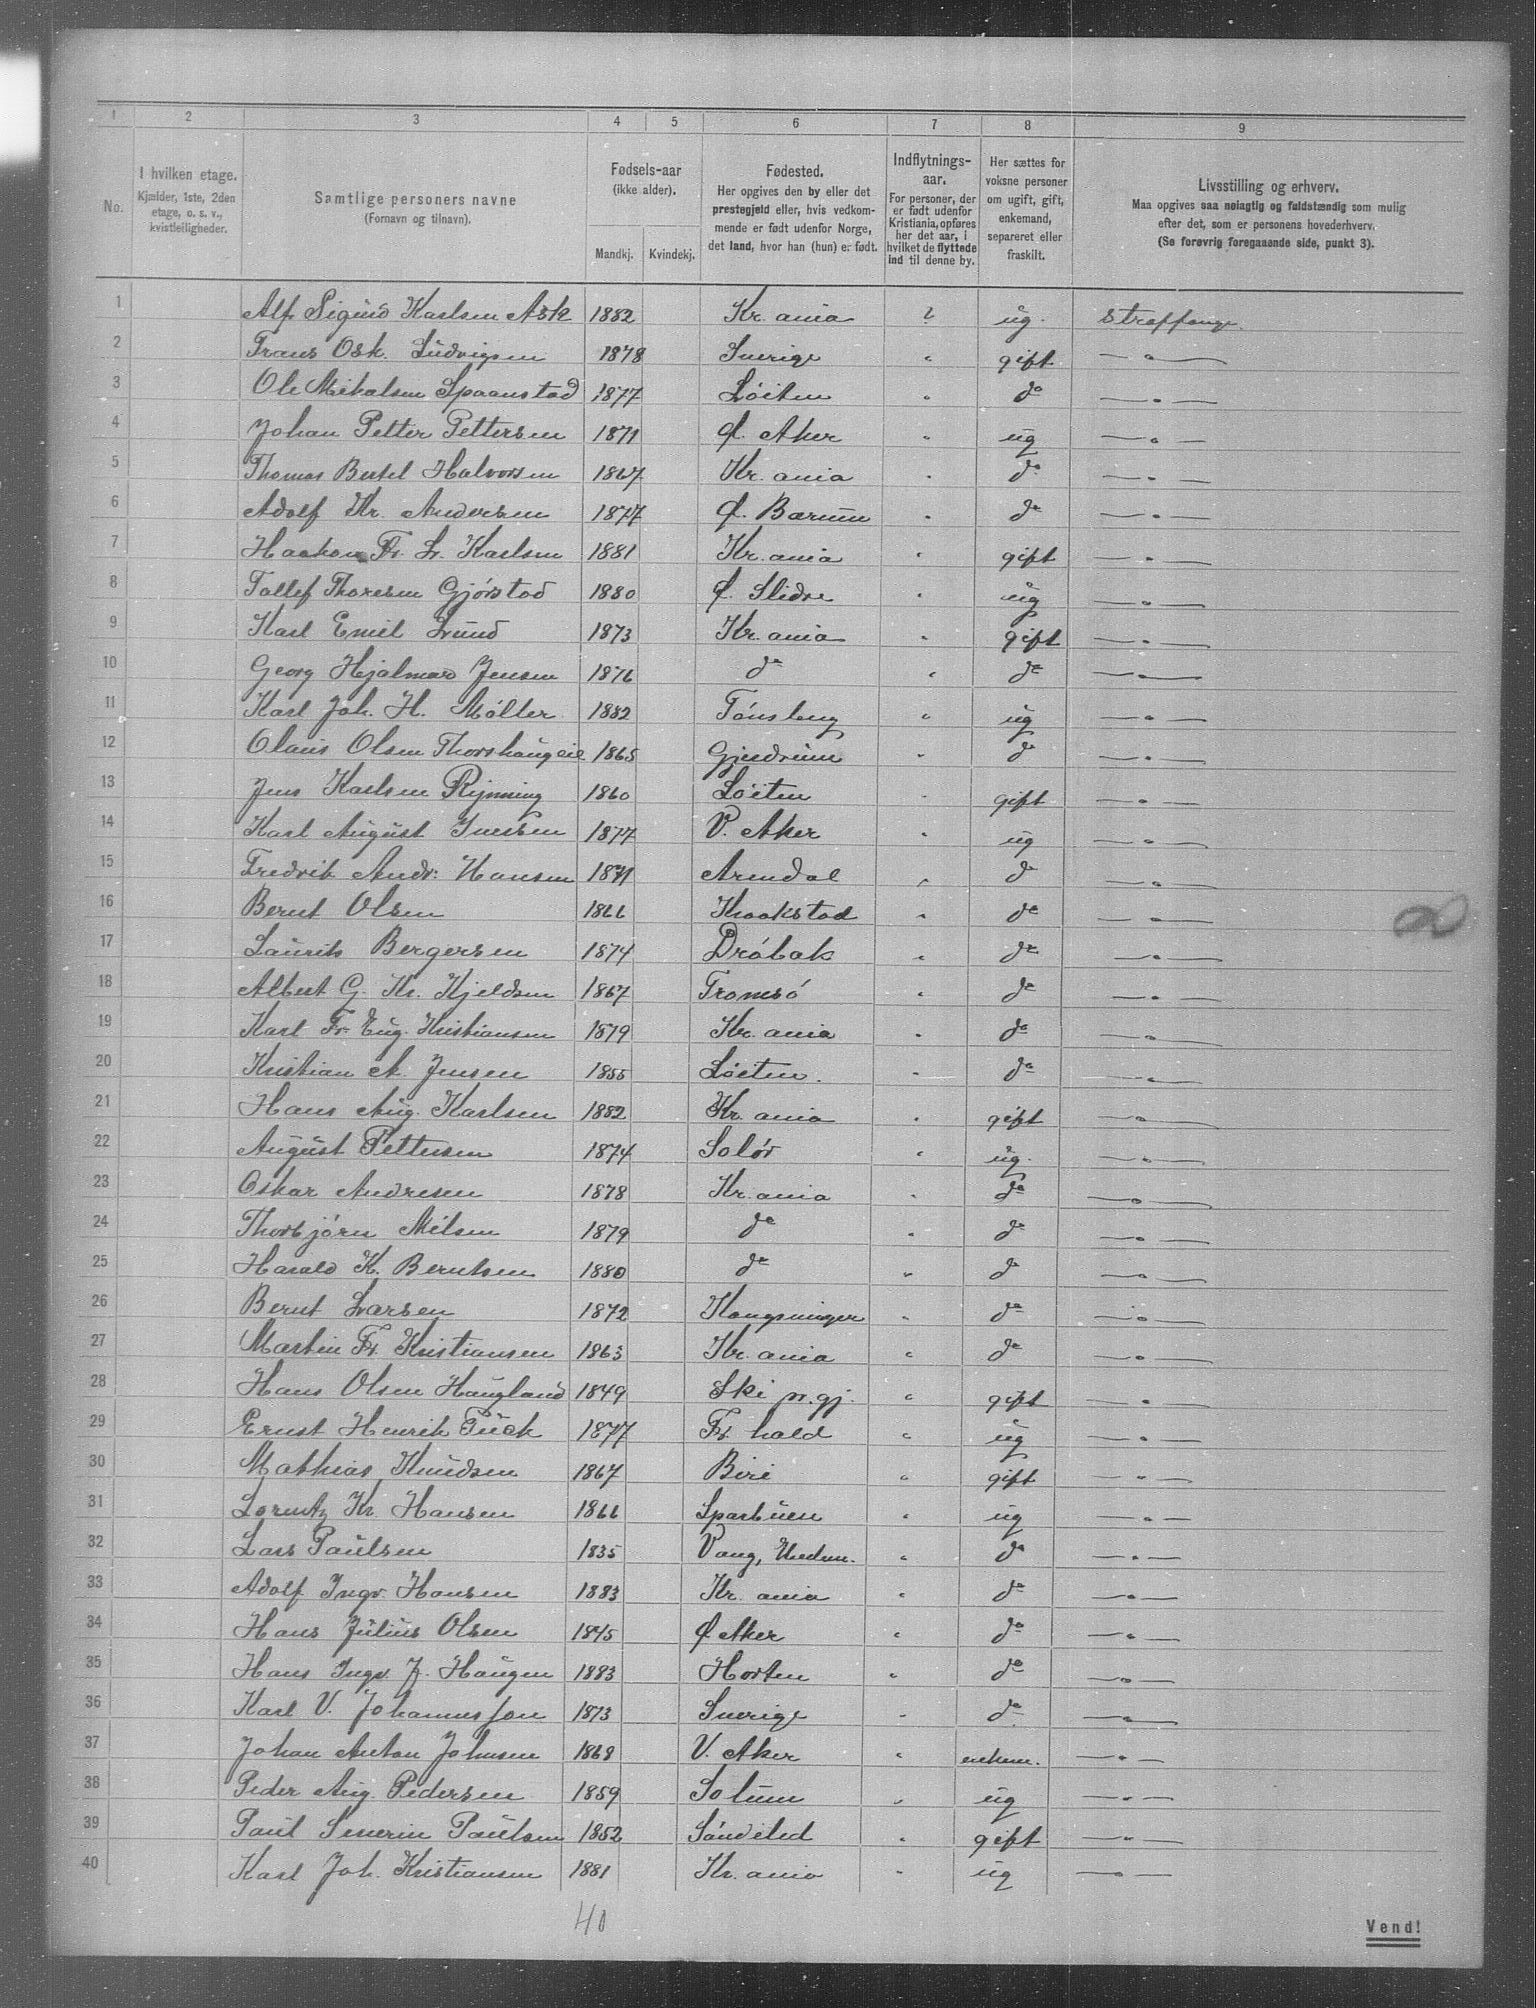 1 2 3 4 5 6 7 8 9
No.
I hvilken etage.
Kjælder, 1ste, 2den
etage, o. s. v.,
kvistleiligheder.
Samtlige personers navne
(Fornavn og tilnavn).
Fødsels-aar
(ikke alder).
Mandkj. Kvindekj.
Fødested.
Her opgives den by eller det
prestegjeld eller, hvis vedkom-
mende er født udenfor Norge,
det land, hvor han (hun) er født.
Indflytnings-
aar.
For personer, der
er født udenfor
Kristiania, opføres
her det aar, i
hvilket de flyttede
ind til denne by.
Her sættes for
voksne personer
om ugift, gift,
enkemand,
separeret eller
fraskilt.
Livsstilling og erhverv.
Maa opgives saa nøiagtig og fuldstændig som mulig
efter det, som er personens hovederhverv.
(Se forøvrig foregaaende side, punkt 3).
1 Alf Sigurd Karlsen Ask 1882 Kr.ania ? ug. straffange
2 Frans Osk. Ludvigsen 1878 Sverige " gift —"—
3 Ole Mikalsen Spaanstad 1877 Løiten " do —"—
4 Johan Petter Pettersen 1871 Ø. Aker " ug —"—
5 Thomas Bertel Halvorsen 1867 Kr.ania " do —"—
6 Adolf Kr. Andersen 1877 Ø. Bærum " do —"—
7 Haakon Fr. L. Karlsen 1881 Kr.ania " gift —"—
8 Tollef Thoresen Gjørstad 1880 Ø. Slidre " ug —"—
9 Karl Emil Lund 1873 Kr.ania " gift —"—
10 Georg Hjalmar Jensen 1876 do " do —"—
11 Karl Joh. H. Møller 1882 Tønsberg " ug —"—
12 Olaus Olsen Thorshaugeie 1865 Gjerdrum " do —"—
13 Jens Karlsen Rynning 1860 Løiten " gift —"—
14 Karl August Iversen 1877 V. Aker " ug —"—
15 Fredrik Andr. Hansen 1871 Arendal " do —"—
16 Bernt Olsen 1866 Kraakstad " do —"—
17 Laurits Bergersen 1874 Drøbak " do —"—
18 Albert G. Kr. Kjeldsen 1867 Tromsø " do —"—
19 Karl Fr. Eug. Kristiansen 1879 Kr.ania " do —"—
20 Kristian A. Jensen 1855 Løiten. " do —"—
21 Hans Aug. Karlsen 1882 Kr.ania " gift —"—
22 August Pettersen 1874 Solør " ug. —"—
23 Oskar Andresen 1878 Kr.ania " do —"—
24 Thorbjørn Nilsen 1879 do " do —"—
25 Harald K. Berntsen 1880 do " do —"—
26 Bernt Larsen 1872 Kongsvinger " do —"—
27 Martin Fr. Kristiansen 1863 Kr.ania " do —"—
28 Hans Olsen Haugland 1849 Ski pr.gj. " gift —"—
29 Ernst Henrik Tuck 1877 Fr. hald " ug —"—
30 Mathias Knudsen 1867 Biri " gift —"—
31 Lorentz Kr. Hansen 1866 Sparbuen " ug —"—
32 Lars Paulsen 1835 Vang, Hedem. " do —"—
33 Adolf Ingv. Hansen 1883 Kr.ania " do —"—
34 Hans Julius Olsen 1845 Ø Aker " do —"—
35 Hans Ingv. J. Haugen 1883 Horten " do —"—
36 Karl V. Johannesson 1873 Sverige " do —"—
37 Johan Anton Johnsen 1868 V. Aker " enkem. —"—
38 Peder Aug. Pedersen 1859 Solum " ug —"—
39 Paul Severin Paulsen 1852 Søndeled " gift —"—
40 Karl Joh. Kristiansen 1881 Kr.ania " ug —"—
40
Vend!